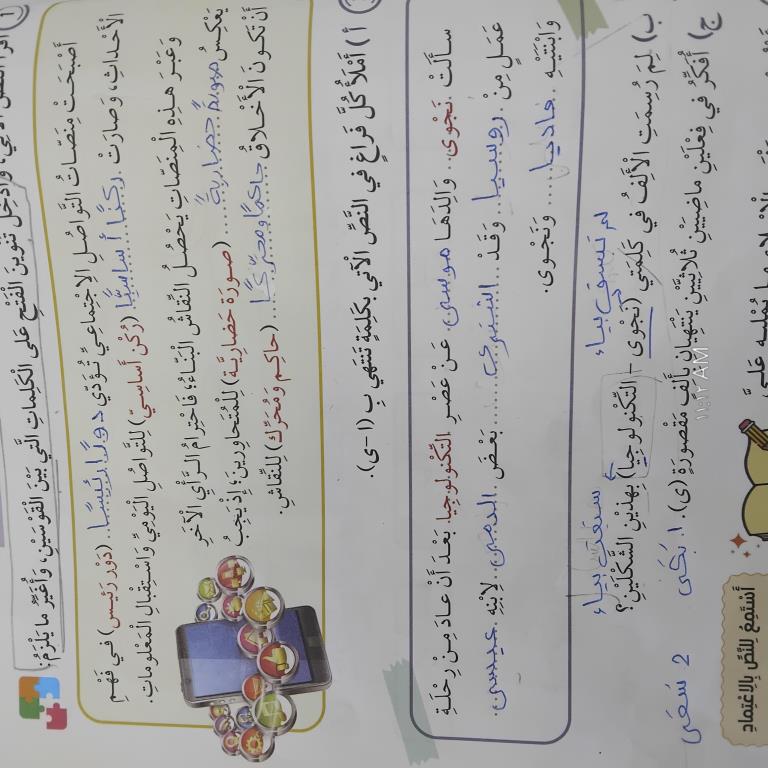 أقرأ النص الآتي، وأدخل تنوين الفتح على الكلمات التي بين القوسين، وأغير ما يلزم:
أصبحت منصات التواصل الاجتماعي تؤدي دورًا رئيسًا (دور رئيس) في فهم
الأحداث، وصارت ركنًا أساسيًّا (ركن أساسي) للتواصل اليومي واستقبال المعلومات.
وعبر هذه المنصات يحصل النقاش البناء؛ فاحترام الرأي الآخر
يعكس صورةً حضاريةً (صورة حضارية) للمتحاورين؛ إذ يجب
أن تكون الأخلاق حاكمًا ومحركًا (حاكم ومحرك) للنقاش.
أ) أملأ كل فراغ في النص الآتي بكلمة تنتهي ب (ا-ى).
سألت نجوى والدها موسى عن عصر التكنولوجيا بعد أن عاد من رحلة
عمل من روسيا وقد اشترى بعض الدمى لابنه عيسى.
وابنتيه هاديا ونجوى.
ب) لم رسمت الألف في كلمتي (نجوى - التكنولوجيا) بهذين الشكلين؟
لم تسبق بياء
سبقت بياء
ج) أفكر في فعلين ماضيين ثلاثيين ينتهيان بألف مقصورة (ى).
1. بكى
2 سعى
أستمع للنص بالاعتماد